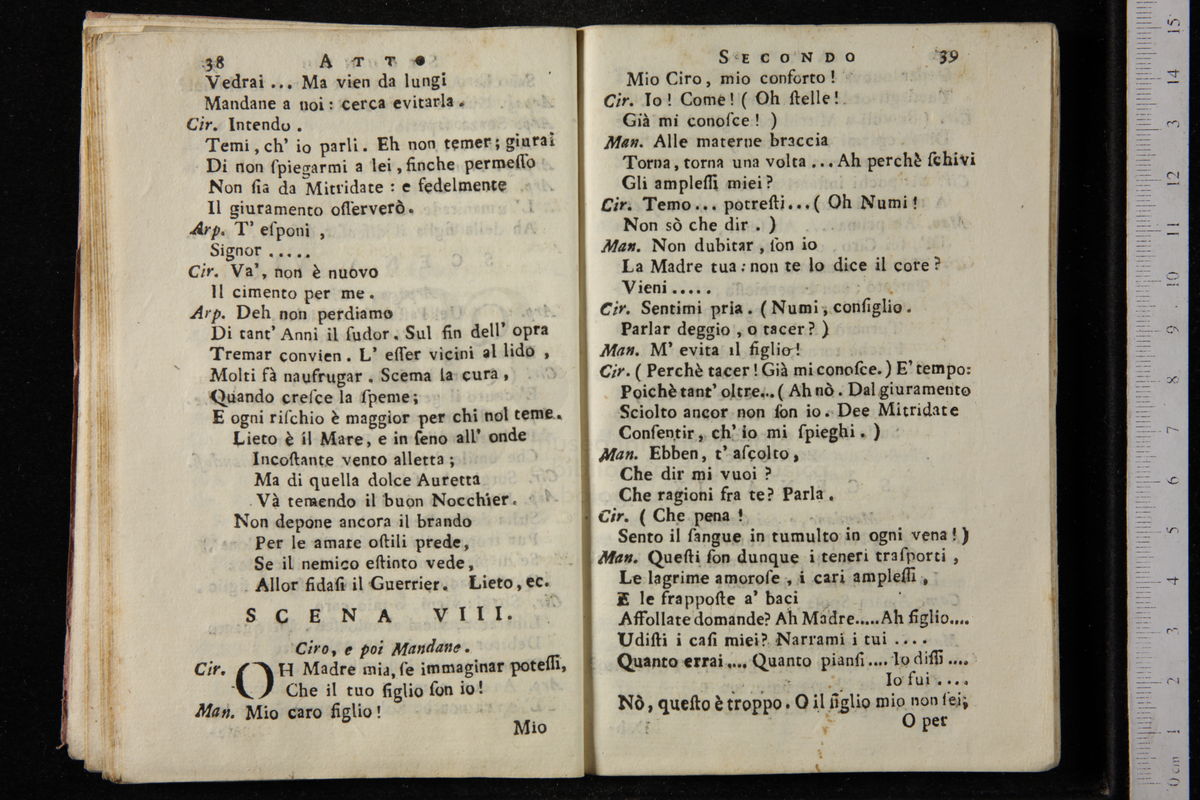 38 ATTO
Vedrai ... Ma vien da lungi
Mandane a noi : cerca evitarla.
Cir. Intendo.
Temi, ch' io parli. Eh non temer; giurai
Di non ſpiegarmi a lei, finche permeſſo
Non ſia da Mitridate : e fedelmente
Il giuramento oſſerverò.
Arp. T' eſponi,
Signor .....
Cir. Va', non è nuovo
Il cimento per me.
Arp. Deh non perdiamo
Di tant' Anni il ſudor. Sul fin dell' opra
Tremar convien. L' eſſer vicini al lido,
Molti fà naufrugar. Scema la cura,
Quando creſce la ſpeme;
E ogni riſchio è maggior per chi nol teme.
Lieto è il Mare, e in ſeno all' onde
Incoſtante vento alletta;
Ma di quella dolce Auretta
Và temendo il buon Nocchier.
Non depone ancora il brando
Per le amate oſtili prede,
Se il nemico eſtinto vede,
Allor fidaſi il Guerrier. Lieto, ec.
SCENA VIII.
Ciro, e poi Mandane.
Cir. OH Madre mia, ſe immaginar poteſſi,
Che il tuo figlio ſon io!
Man. Mio caro figlio!
Mio
SECONDO 39
Mio Ciro, mio conforto!
Cir. Io! Come! ( Oh ſtelle!
Già mi conoſce! )
Man. Alle materne braccia
Torna, torna una volta ... Ah perchè ſchivi
Gli ampleſſi miei?
Cir. Temo... potreſti...( Oh Numi!
Non sò che dir. )
Man. Non dubitar, ſon io
La Madre tua: non te lo dice il core?
Vieni.....
Cir. Sentimi pria. ( Numi, conſiglio.
Parlar deggio, o tacer? )
Man. M' evita il figlio!
Cir. ( Perchè tacer! Già mi conoſce. ) E' tempo:
Poichè tant' oltre... ( Ah nò. Dal giuramento
Sciolto ancor non ſon io. Dee Mitridate
Conſentir, ch' io mi ſpieghi. )
Man. Ebben, t' aſcolto,
Che dir mi vuoi?
Che ragioni fra te? Parla.
Cir. ( Che pena!
Sento il ſangue in tumulto in ogni vena! )
Man. Queſti ſon dunque i teneri traſporti,
Le lagrime amoroſe, i cari ampleſſi,
E le frappoſte a' baci
Affollate domande? Ah Madre.....Ah figlio....
Udiſti i caſi miei? Narrami i tui ....
Quanto errai.... Quanto pianſi.... Io diſſi ....
Io fui ....
Nò, queſto è troppo. O il figlio mio non ſei;
O per
0 cm 1 2 3 4 5 6 7 8 9 10 11 12 3 14 15